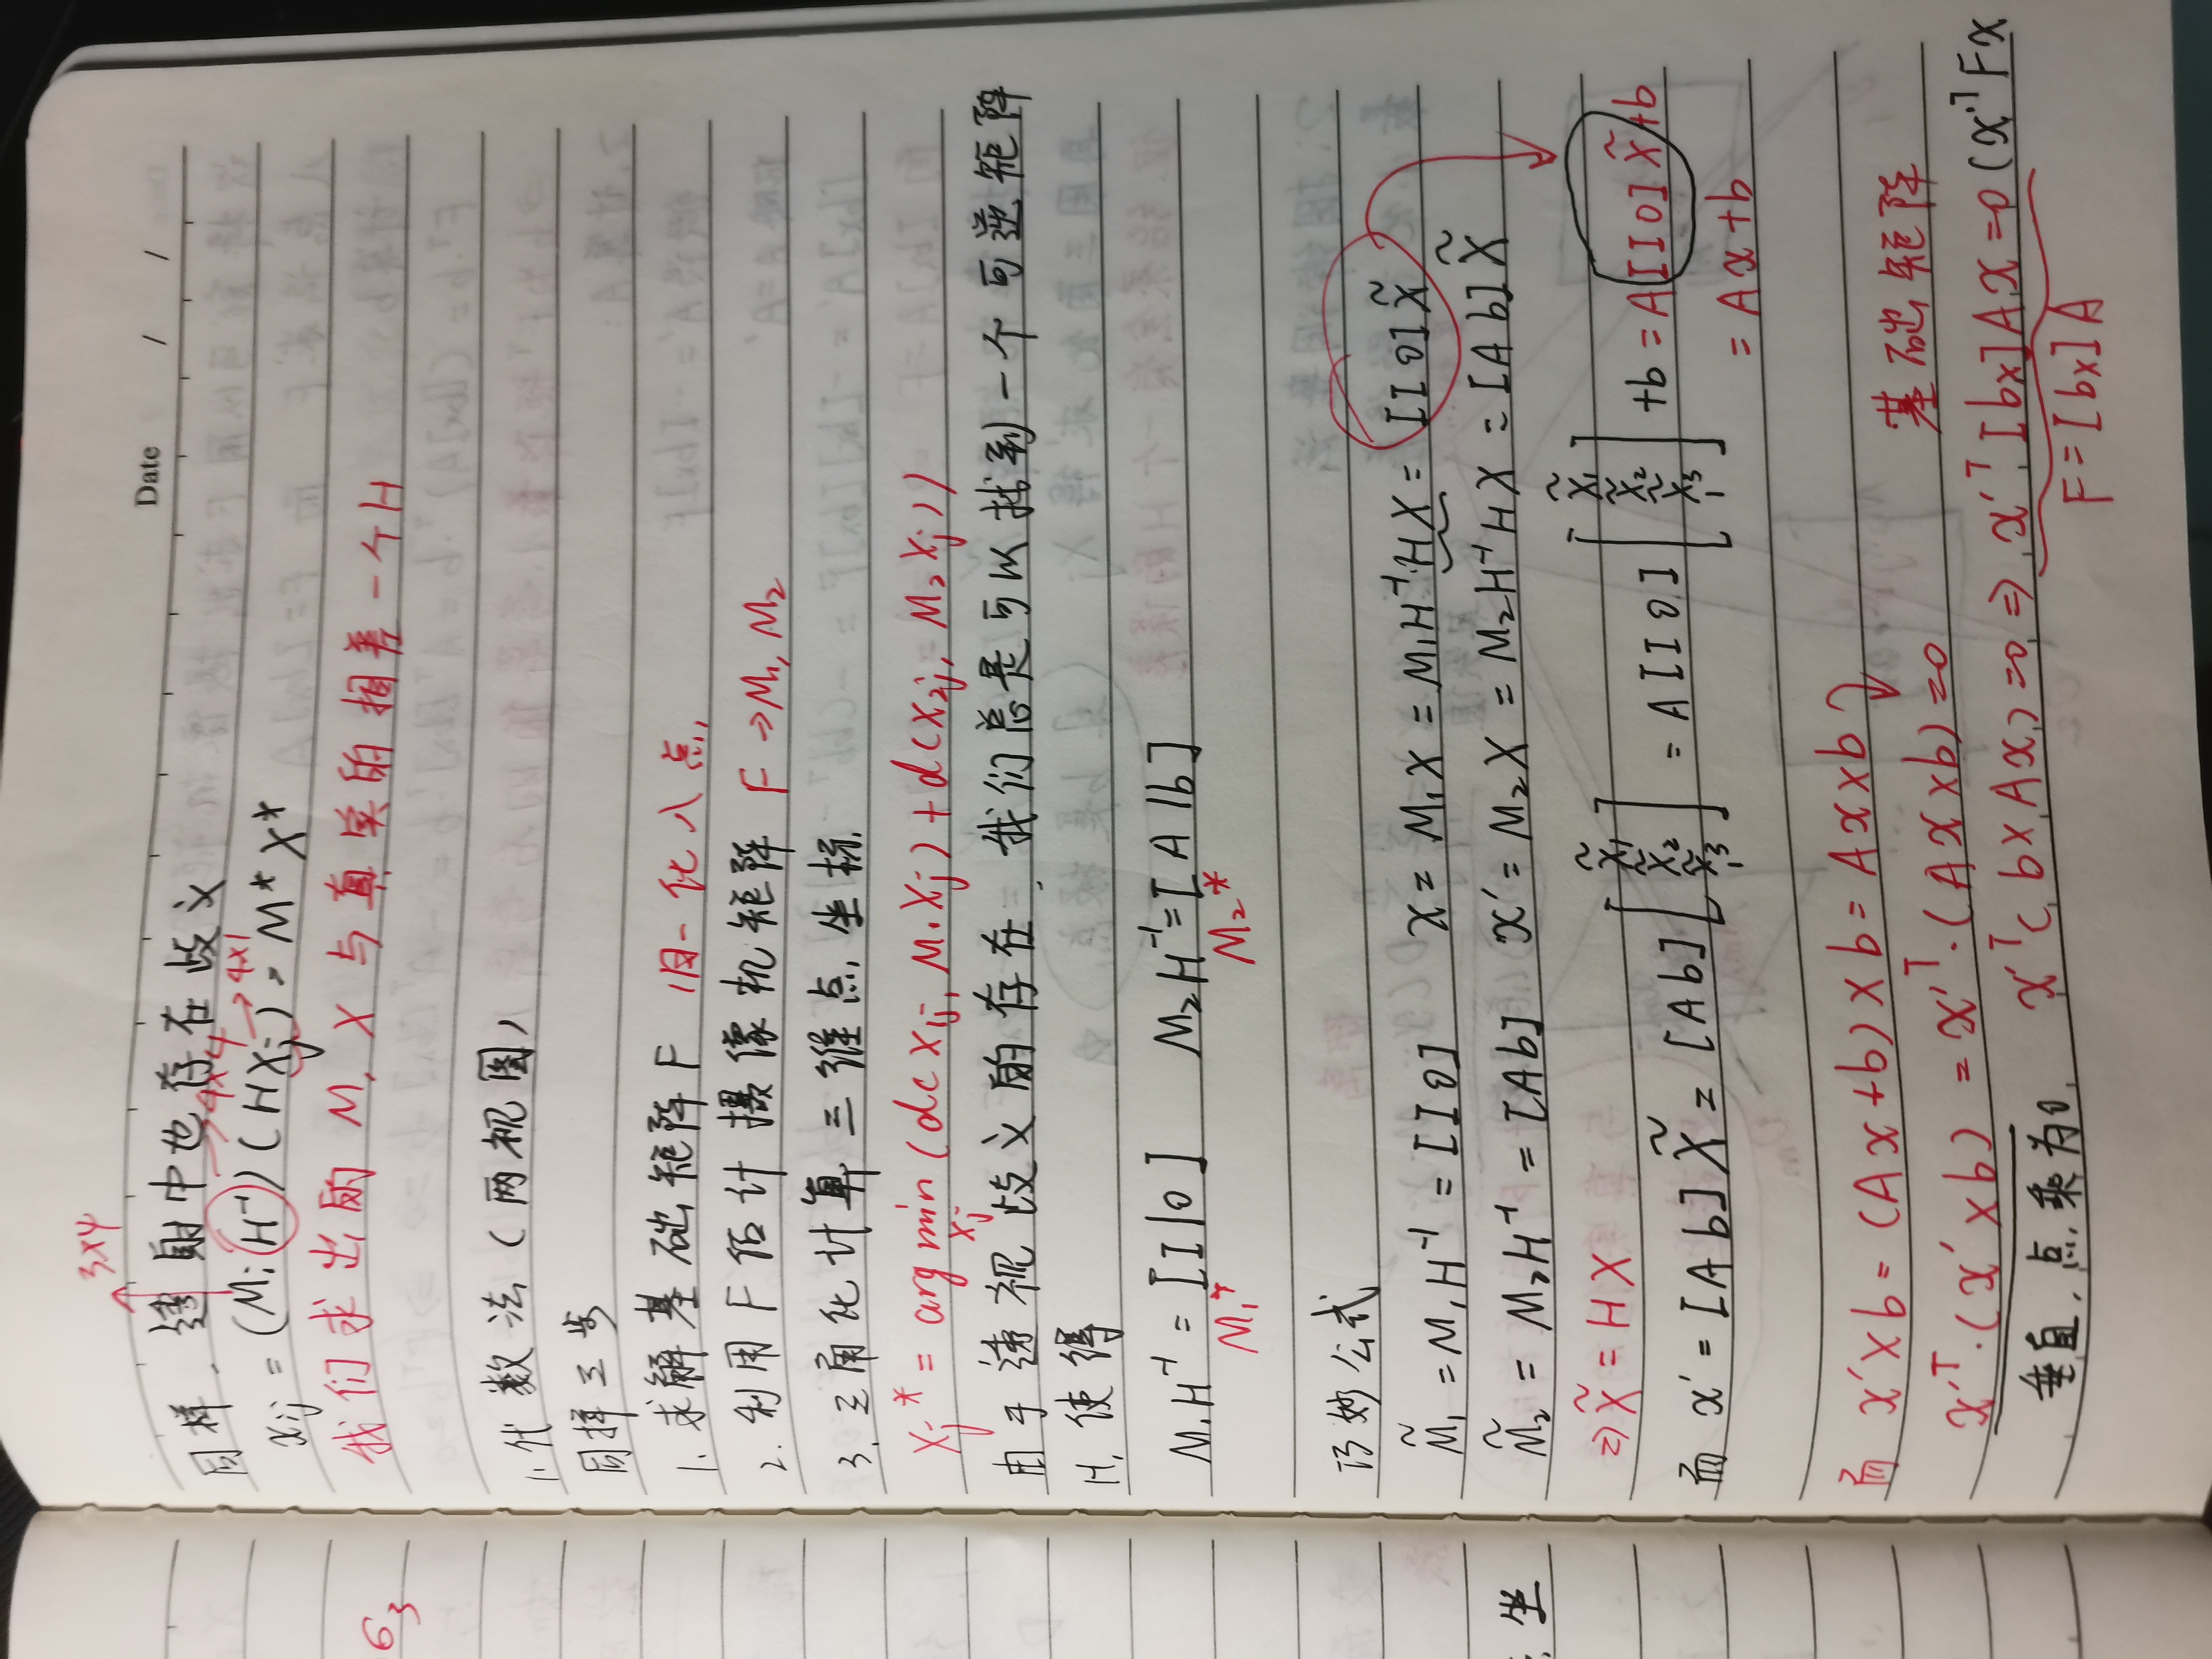 Date / /
同样，透射中也存在歧义
3x4 4x4 4x1
xij = (Mi H⁻¹)(HXj) = M* X*
我们求出的 M, X 与真实的相差一个 H
1. 代数法（两视图）
同样三步
1. 求解基础矩阵 F 归一化八点
2. 利用 F 估计摄像机矩阵 F → M1, M2
3. 三角化计算三维点坐标.
Xj* = argmin (d(x1j, M1Xj) + d(x2j, M2Xj))
Xj
由于透视歧义的存在, 我们总是可以找到一个可逆矩阵
H, 使得
M1H⁻¹ = [I|0] M2H⁻¹ = [A|b]
M1* M2*
巧妙公式
M̃1 = M1H⁻¹ = [I 0] x = M1X = M1H⁻¹HX = [I 0]X̃
M̃2 = M2H⁻¹ = [A b] x' = M2X = M2H⁻¹HX = [A b]X̃
2) X̃ = HX
而 x' = [A b]X̃ = [A b][X̃1 X̃2 X̃3 1] = A[I 0][X̃1 X̃2 X̃3 1] + b = A[I 0]X̃ + b
= Ax + b
而 x' × b = (Ax + b) × b = Ax × b 基础矩阵
x'ᵀ·(x' × b) = x'ᵀ·(Ax × b) = 0
垂直, 点乘为0 x'ᵀ(b × Ax) = 0 ⇒ x'ᵀ[b×]Ax = 0 (x'ᵀFx
F = [b×]A
63
坐